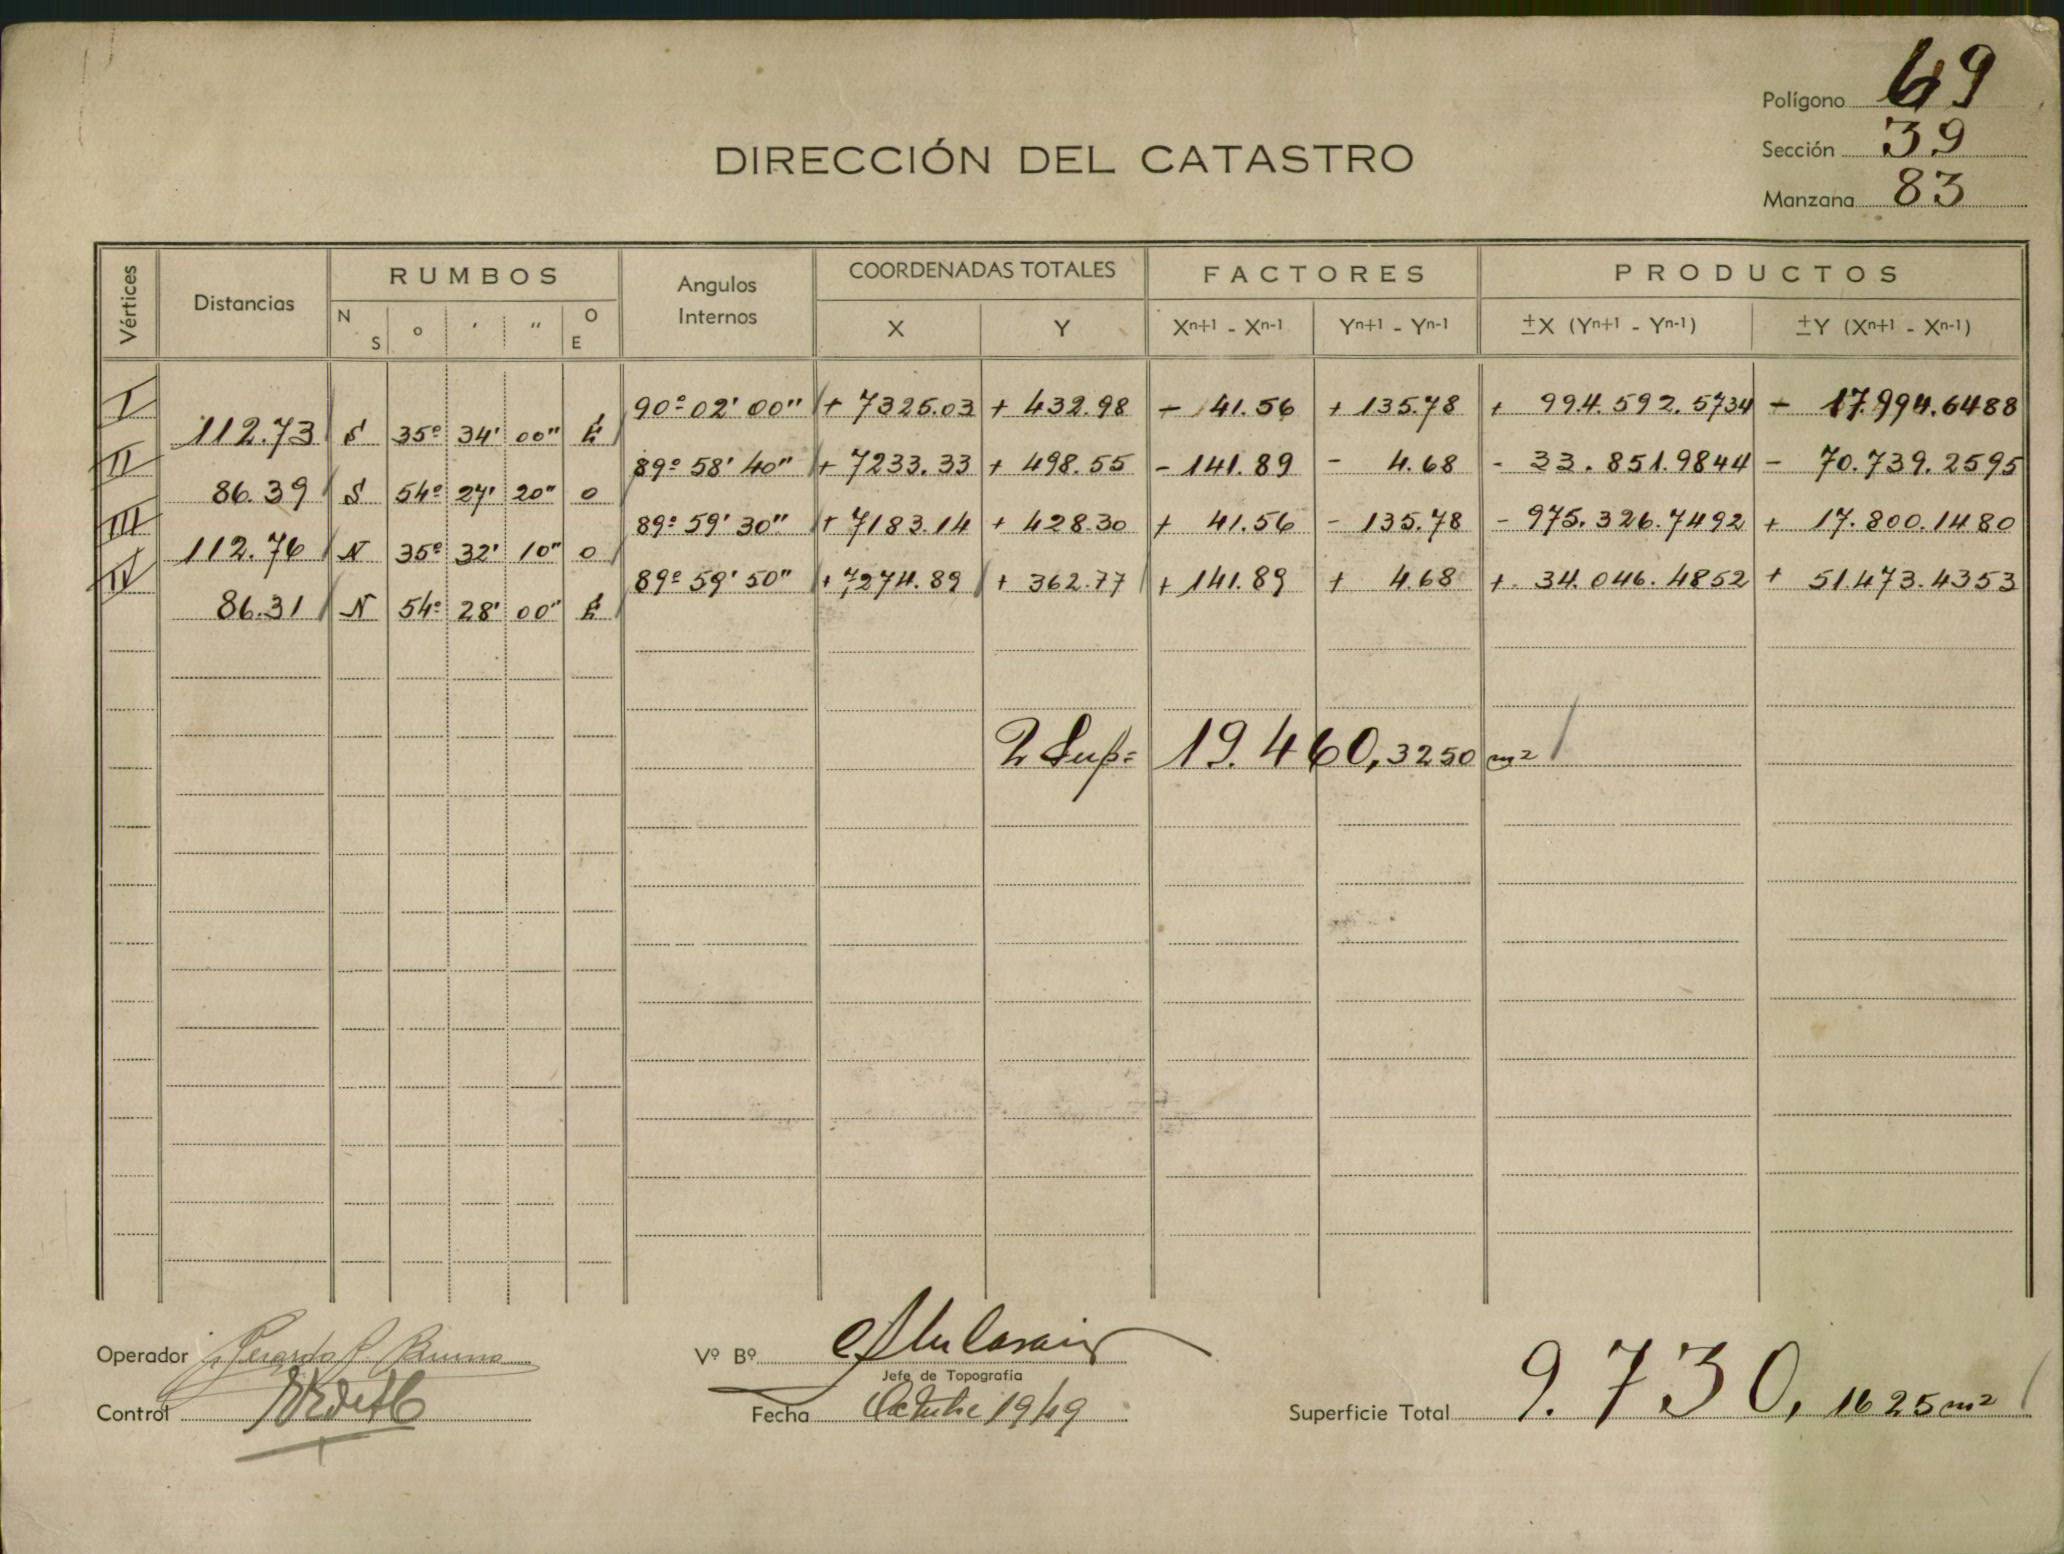 Polígono 69
Sección 39
Manzana 83
DIRECCIÓN DEL CATASTRO
Vértices Distancias RUMBOS Angulos Internos COORDENADAS TOTALES FACTORES PRODUCTOS
N S o ' " O E X Y Xn+1 - Xn-1 Yn+1 - Yn-1 ±X (Yn+1 - Yn-1) ±Y (Xn+1 - Xn-1)
I 90º 02' 00" + 7325.03 + 432.98 - 41.56 + 135.78 + 994.592.5734 - 17.994.6488
112.73 S 35º 34' 00" E
II 89º 58' 40" + 7233.33 + 498.55 - 141.89 - 4.68 - 33.851.9844 - 70.739.2595
86.39 S 54º 27' 20" O
III 89º 59' 30" + 7183.14 + 428.30 + 41.56 - 135.78 - 975.326.7492 + 17.800.1480
112.76 N 35º 32' 10" O
IV 89º 59' 50" + 7274.89 + 362.77 + 141.89 + 4.68 + 34.046.4852 + 51.473.4353
86.31 N 54º 28' 00" E
2 Sup= 19.460,3250 m2
Operador Gerardo
Vº Bº
Jefe de Topografía
Control
Fecha Octubre 1949
Superficie Total 9.730,1625 m2